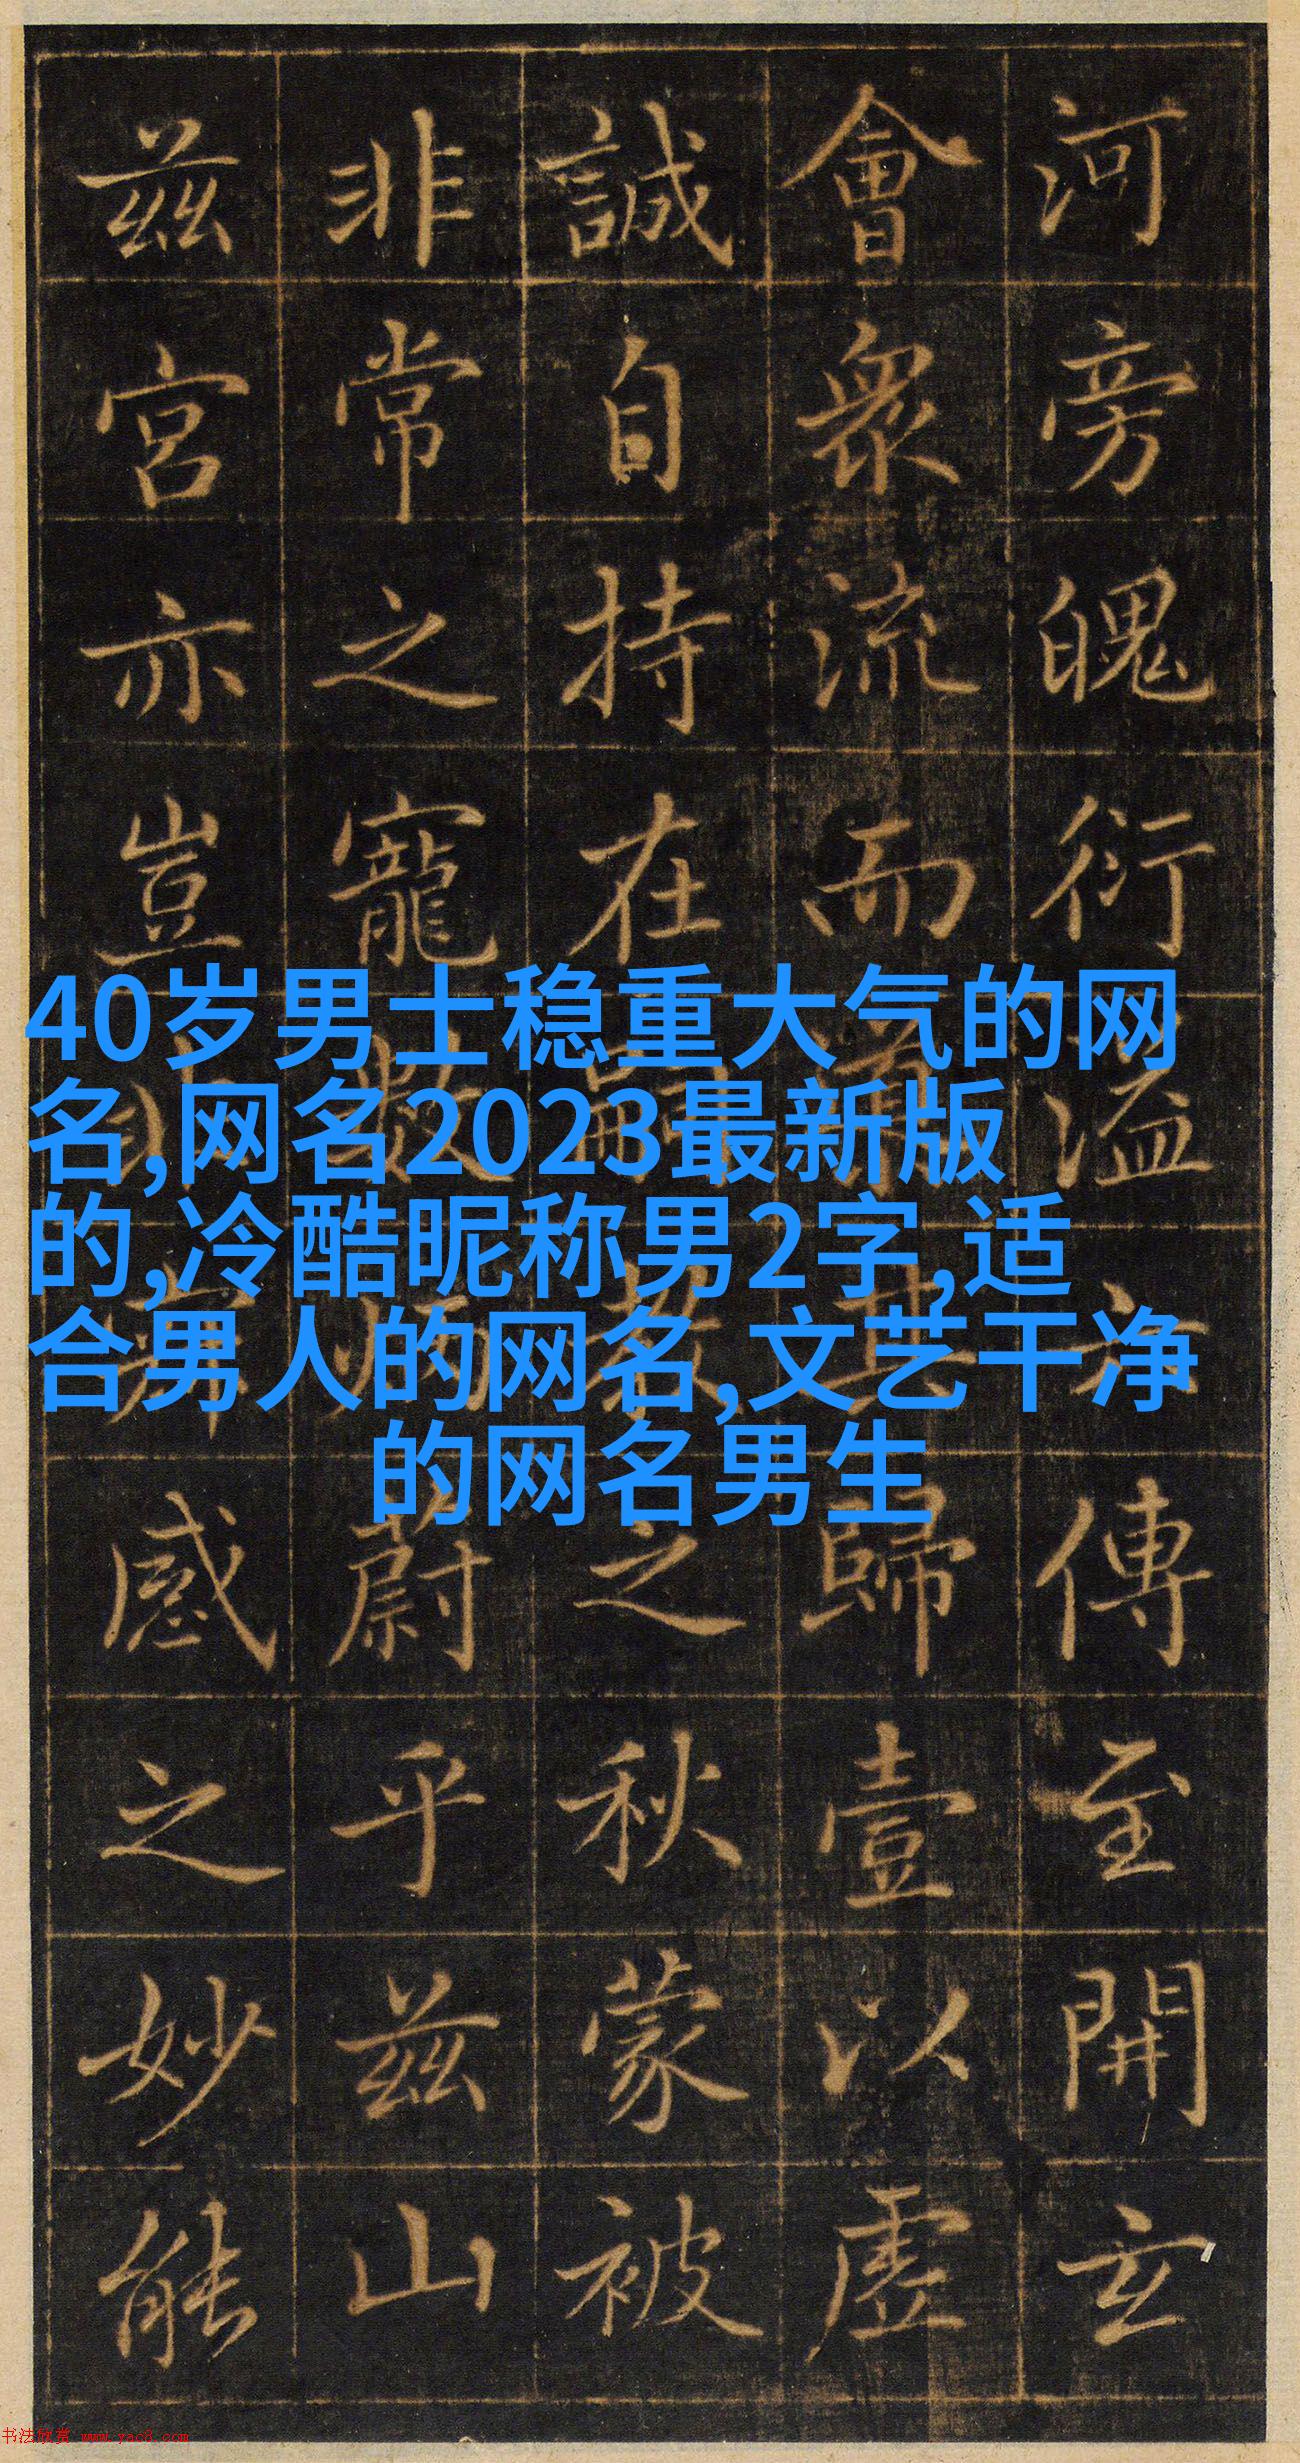 河旁魄衍溢傳至開玄
會眾流而其歸壹以虛
誠自持在之秋蒙被
非常之寵蔚乎茲山
茲宮亦豈感之妙能
40岁男士稳重大气的网
名,网名2023最新版
的,冷酷昵称男2字,适
合男人的网名,文艺干净
的网名男生
书法欣赏 www.yac8.com